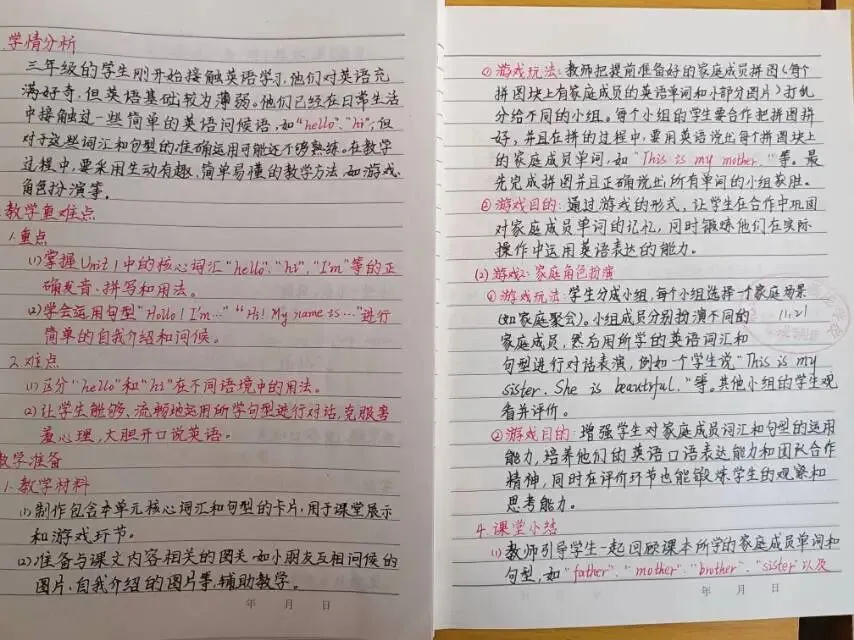 学情分析
三年级的学生刚开始接触英语学习，他们对英语充
满好奇，但英语基础较为薄弱。他们已经在日常生活
中接触过一些简单的英语问候语，如"hello"、"hi"，但
对于这些词汇和句型的准确运用可能还不够熟练。在教学
过程中，要采用生动有趣、简单易懂的教学方法，如游戏、
角色扮演等。
教学重难点
1.重点
(1)掌握Unit 1中的核心词汇"hello"、"hi"、"I'm"等的正
确发音、拼写和用法。
(2)学会运用句型"Hello! I'm…" "Hi! My name is…"进行
简单的自我介绍和问候。
2.难点
(1)区分"hello"和"hi"在不同语境中的用法。
(2)让学生能够流畅地运用所学句型进行对话，克服害
羞心理，大胆开口说英语。
教学准备
1.教学材料
(1)制作包含本单元核心词汇和句型的卡片，用于课堂展示
和游戏环节。
(2)准备与课文内容相关的图片，如小朋友互相问候的
图片、自我介绍的图片等，辅助教学。
年 月 日
①游戏玩法：教师把提前准备好的家庭成员拼图（每个
拼图块上有家庭成员的英语单词和小部分图片）打乱
分给不同的小组。每个小组的学生要合作把拼图拼
好，并且在拼的过程中，要用英语说出每个拼图块上
的家庭成员单词，如"This is my mother."等。最
先完成拼图并且正确说出所有单词的小组获胜。
②游戏目的：通过游戏的形式，让学生在合作中巩固
对家庭成员单词的记忆，同时锻炼他们在实际
操作中运用英语表达的能力。
(2)游戏2：家庭角色扮演
①游戏玩法：学生分成小组，每个小组选择一个家庭场景
(如家庭聚会)。小组成员分别扮演不同的 11.21
家庭成员，然后用所学的英语词汇和
句型进行对话表演，例如一个学生说"This is my
sister. She is beautiful."等。其他小组的学生观
看并评价。
②游戏目的：增强学生对家庭成员词汇和句型的运用
能力，培养他们的英语口语表达能力和团队合作
精神，同时在评价环节也能锻炼学生的观察和
思考能力。
4.课堂小结
(1)教师引导学生一起回顾课本所学的家庭成员单词和
句型，如"father"、"mother"、"brother"、"sister"以及
年 月 日